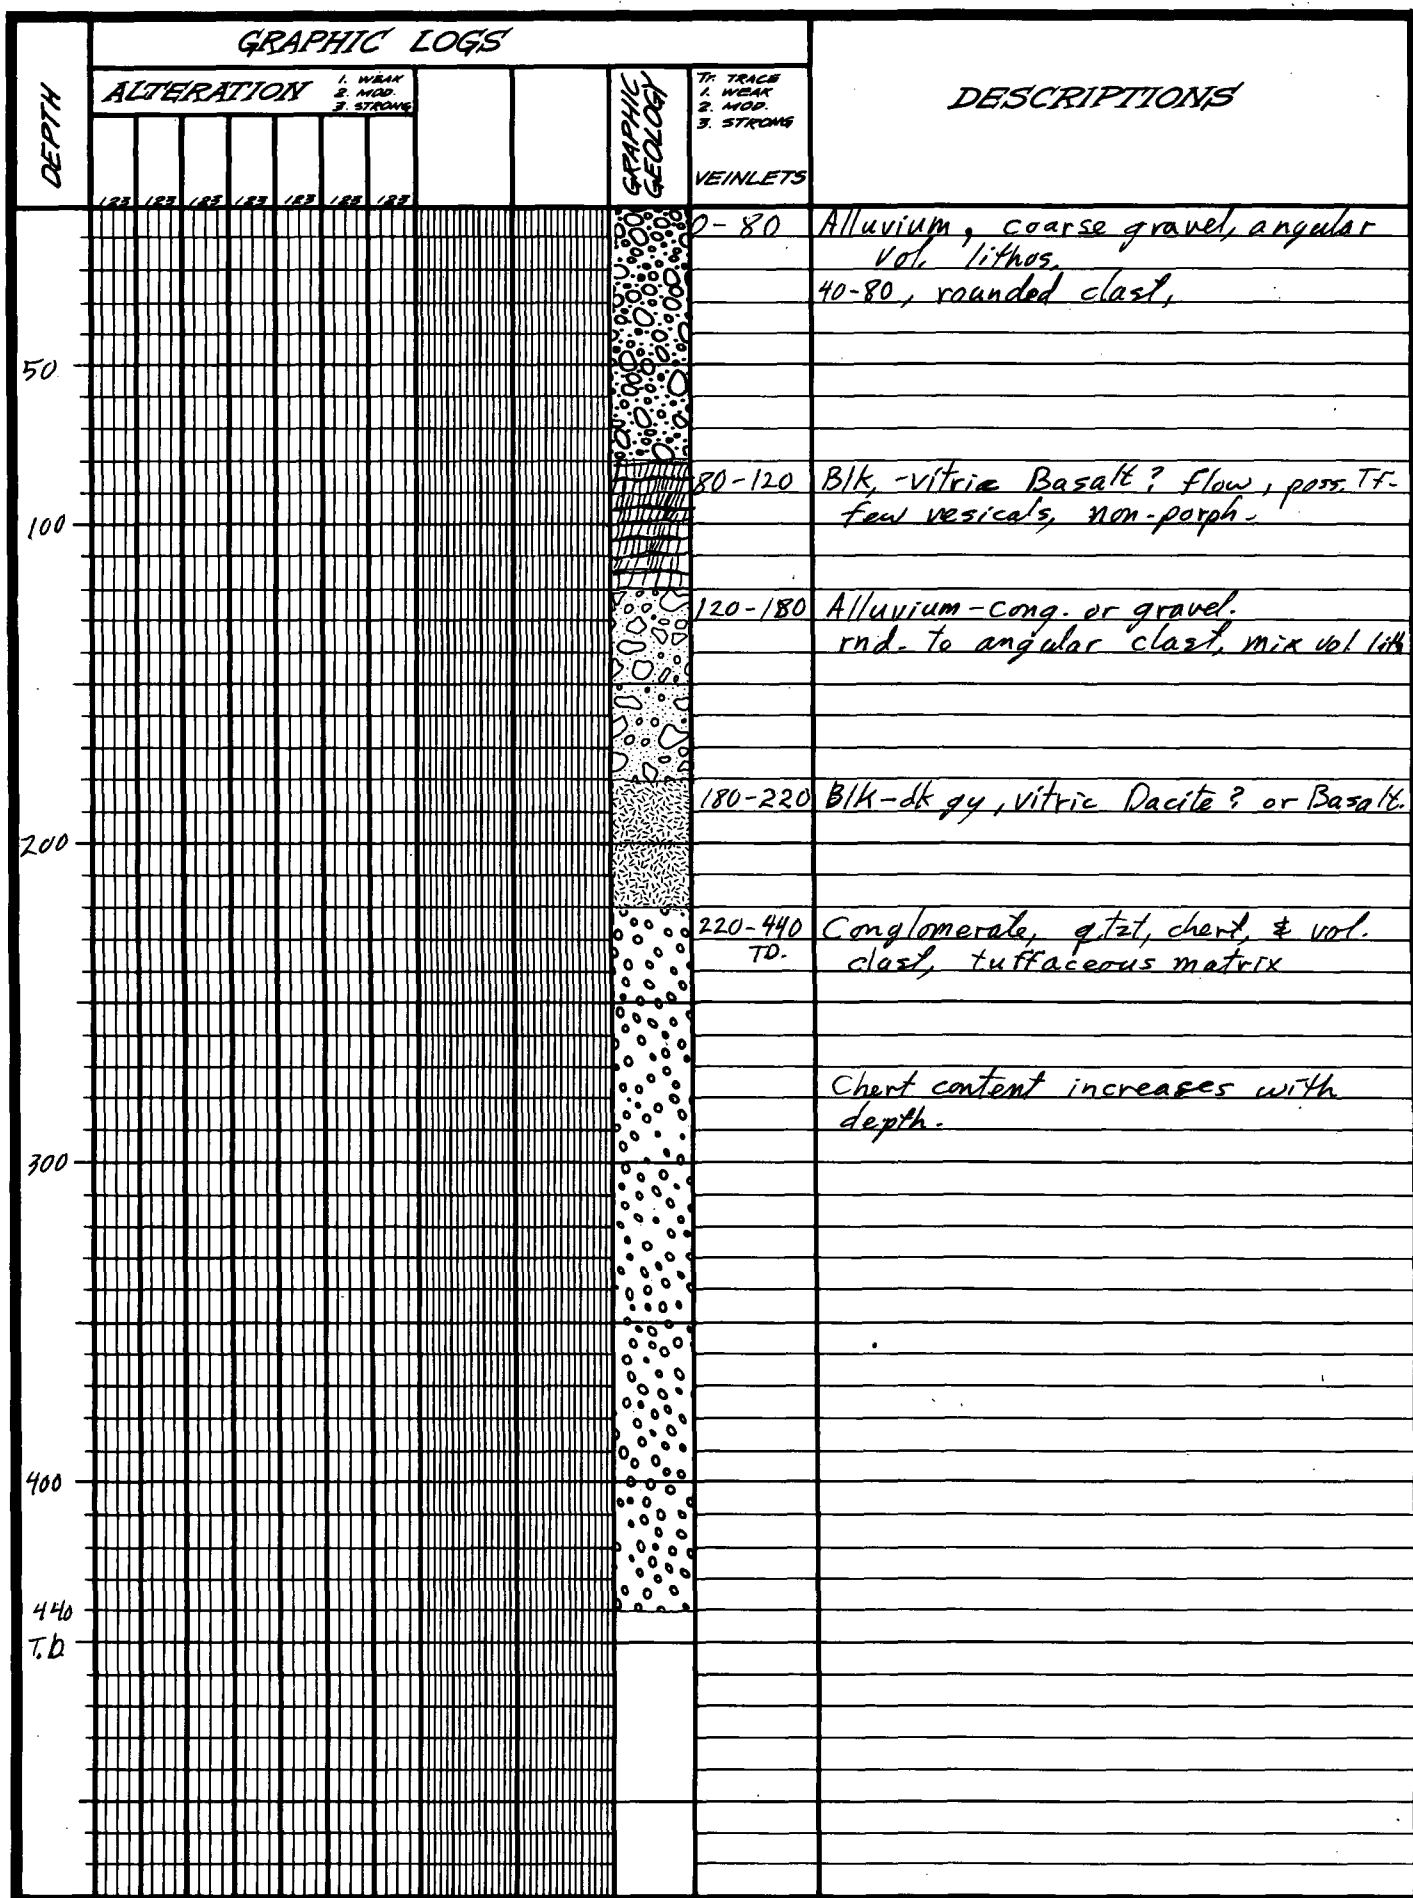 GRAPHIC LOGS
DEPTH
ALTERATION
1. WEAK
2. MOD.
3. STRONG
GRAPHIC GEOLOGY
Tr. TRACE
1. WEAK
2. MOD.
3. STRONG
VEINLETS
DESCRIPTIONS
123 123 123 123 123 123 123
0-80 Alluvium, coarse gravel, angular
vol. lithos.
40-80, rounded clast,
50
80-120 Blk, -vitric Basalt? flow, poss. Tf-
few vesicals, non-porph-
100
120-180 Alluvium-cong. or gravel.
rnd. to angular clast, mix vol lith
180-220 Blk-dk gy, vitric Dacite? or Basalt.
200
220-440 Conglomerate, qtzt, chert, & vol.
TD. clast, tuffaceous matrix
Chert content increases with
depth.
300
400
440
T.D.